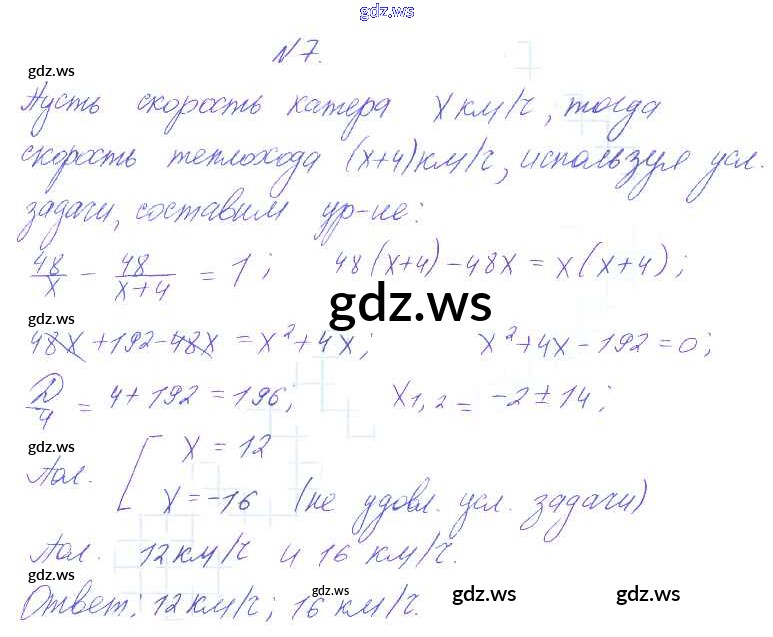 gdz.ws
N7.
gdz.ws
Пусть скорость катера x км/ч, тогда
скорость теплохода (x+4) км/ч, используя усл.
задачи, составим ур-ие:
48/x - 48/(x+4) = 1; 48(x+4) - 48x = x(x+4);
gdz.ws
gdz.ws
48x + 192 - 48x = x² + 4x; x² + 4x - 192 = 0;
D/4 = 4 + 192 = 196; x1,2 = -2 ± 14;
gdz.ws
Пол. [ x = 12
x = -16 (не удовл. усл. задачи)
gdz.ws
Пол. 12 км/ч и 16 км/ч.
gdz.ws
gdz.ws gdz.ws gdz.ws
Ответ: 12 км/ч; 16 км/ч.